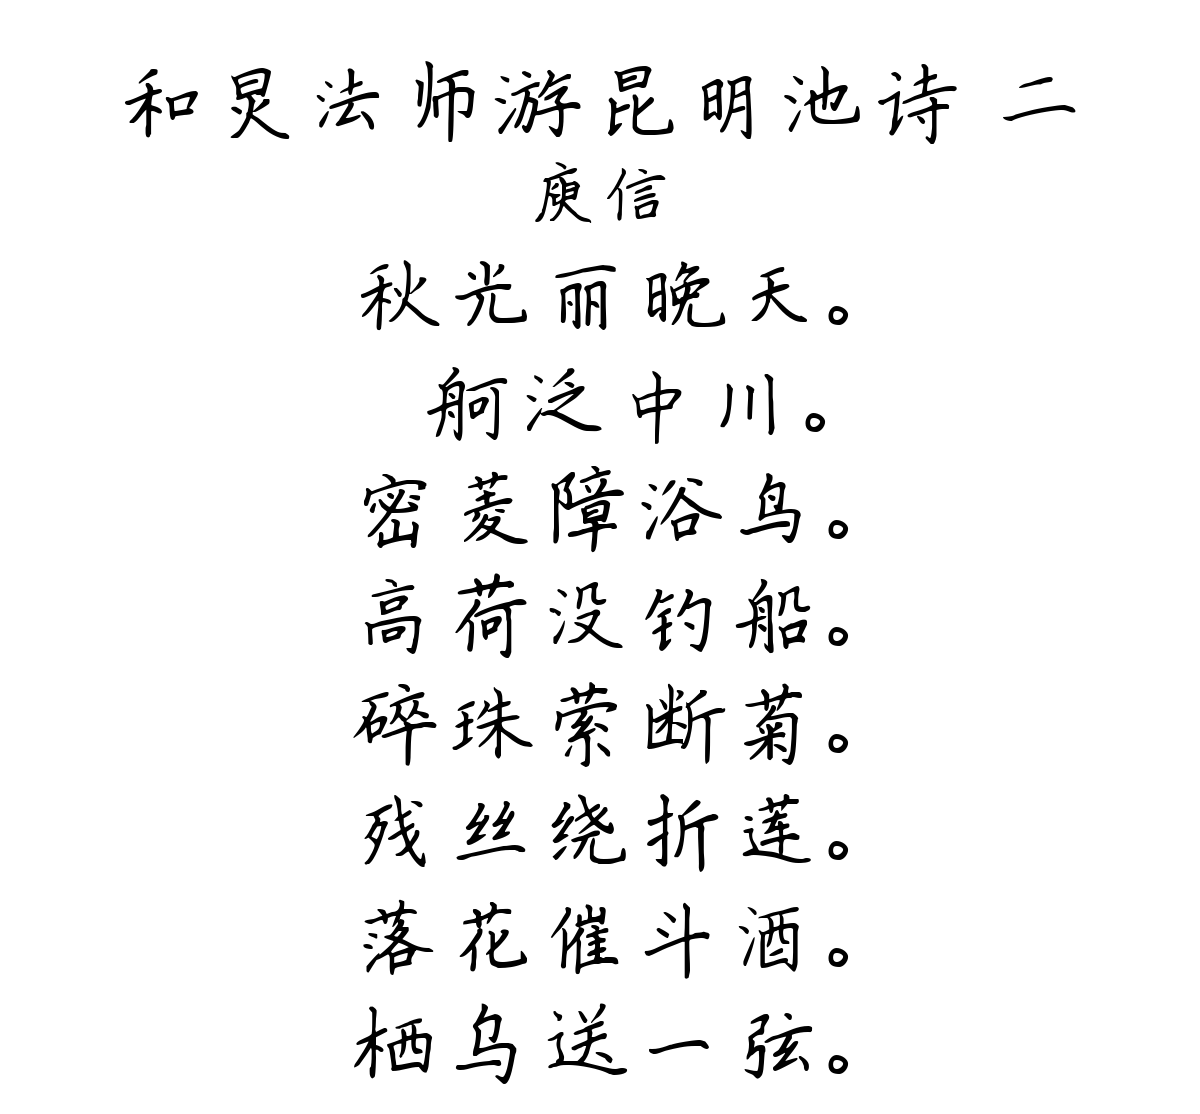 和炅法师游昆明池诗 二
庾信
秋光丽晚天。
舸泛中川。
密菱障浴鸟。
高荷没钓船。
碎珠萦断菊。
残丝绕折莲。
落花催斗酒。
栖乌送一弦。